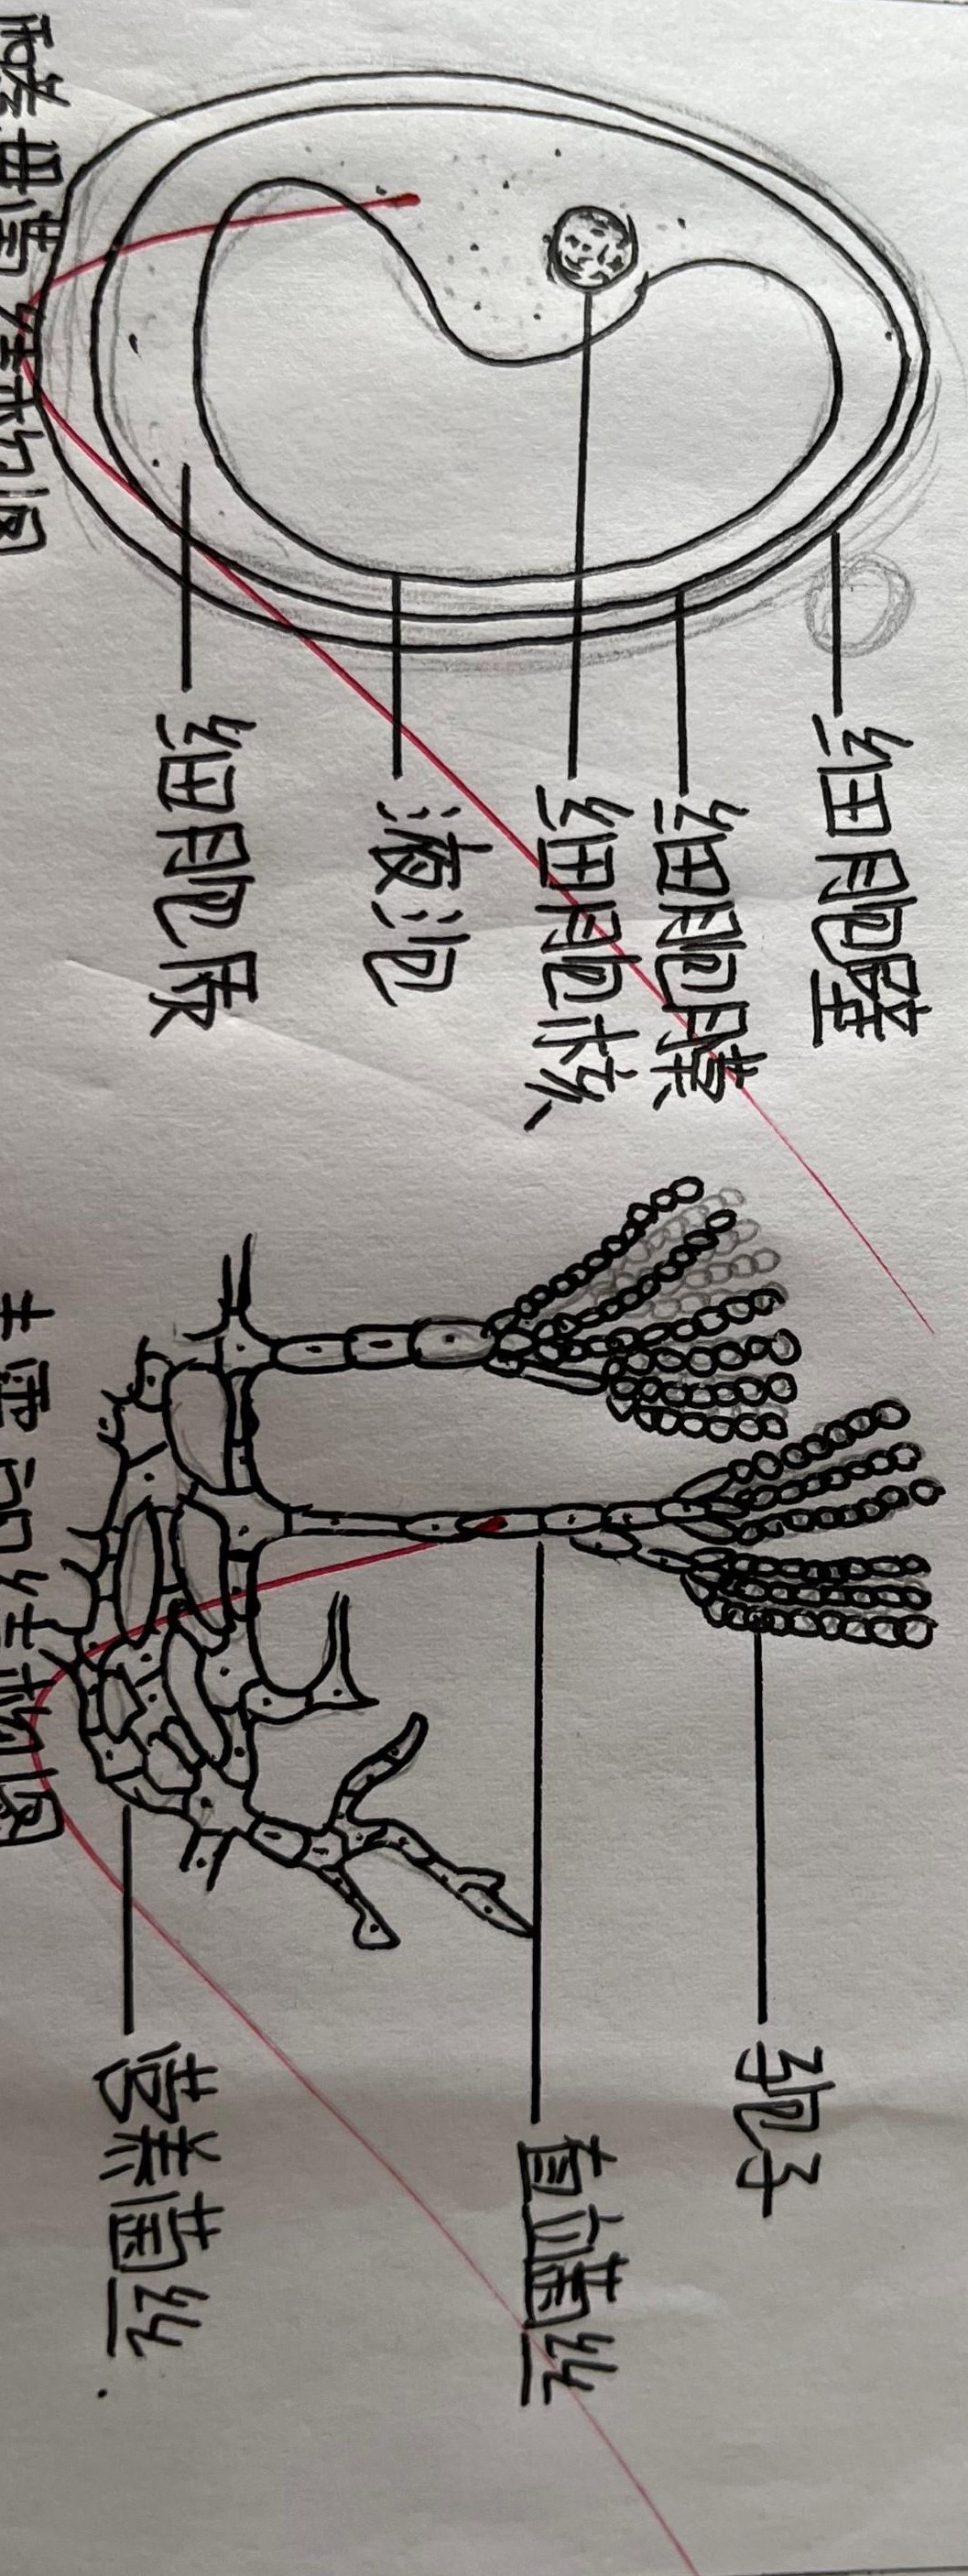 细胞壁
细胞膜
细胞核
液泡
细胞质
酵母菌结构图
孢子
直立菌丝
营养菌丝
青霉的结构图